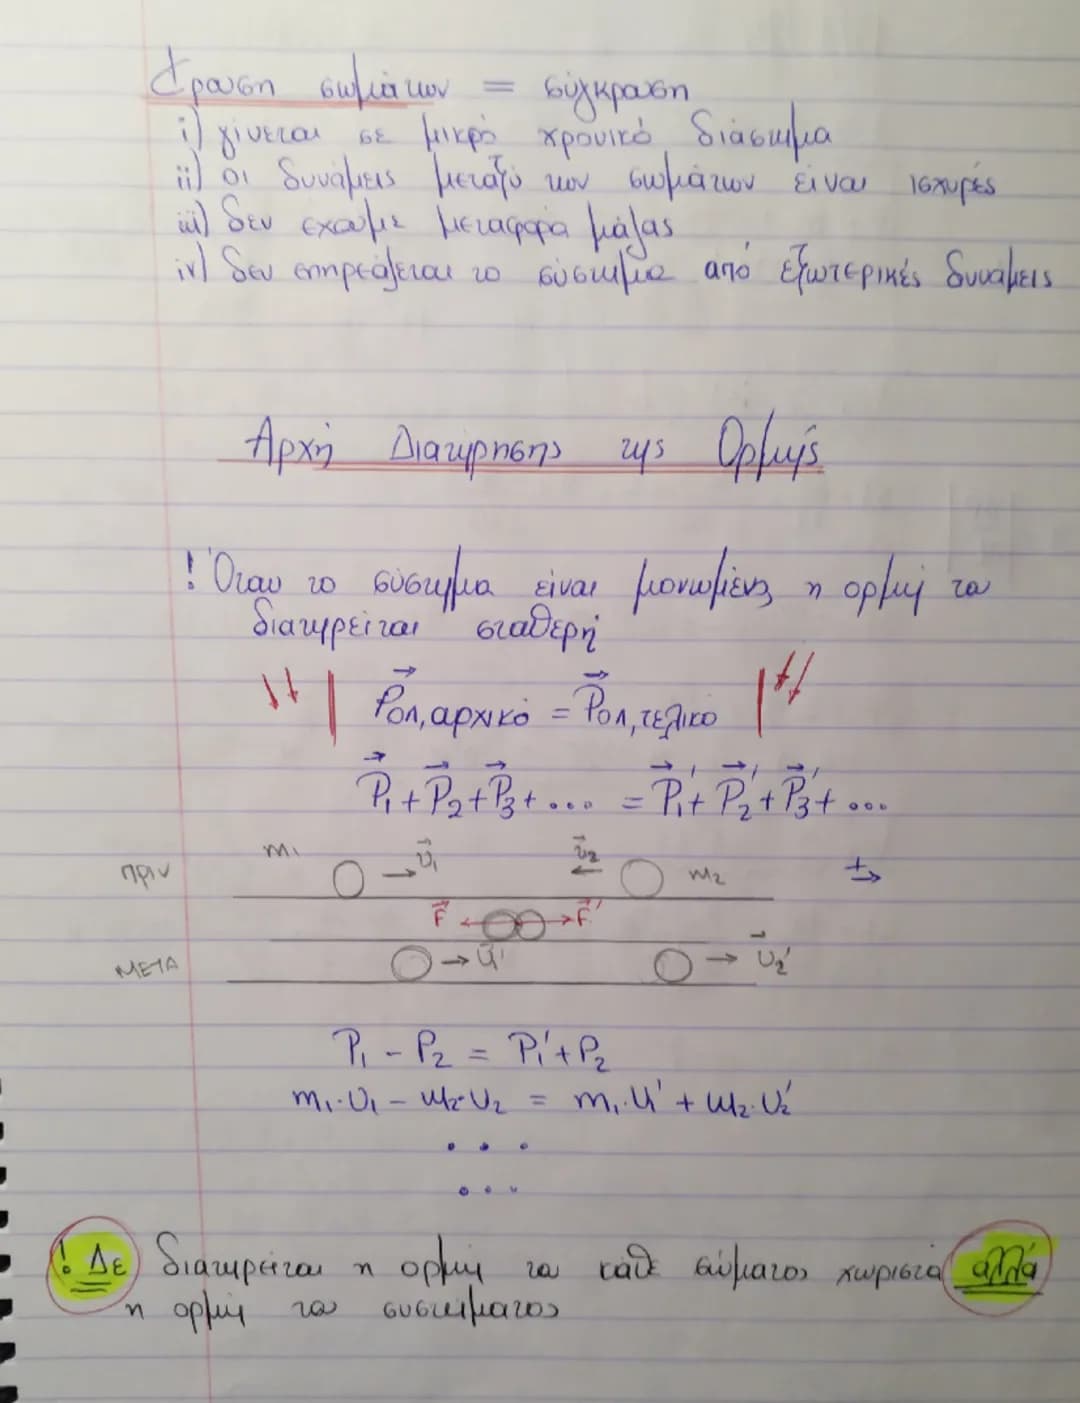 Κρούση σωμάτων = σύγκρουση
i) γίνεται σε μικρό χρονικό διάστημα
ii) οι δυνάμεις μεταξύ των σωμάτων είναι ισχυρές
iii) δεν έχουμε μεταφορά μάζας
iv) δεν επηρεάζεται το σύστημα από εξωτερικές δυνάμεις
Αρχή Διατήρησης της Ορμής
! Όταν το σύστημα είναι μονωμένο η ορμή του
διατηρείται σταθερή
P⃗ολ,αρχικό = P⃗ολ,τελικό
P⃗₁ + P⃗₂ + P⃗₃ + ... = P⃗₁' + P⃗₂' + P⃗₃' + ...
πριν m₁ υ⃗₁ υ⃗₂ m₂ +
F⃗ F⃗'
ΜΕΤΑ υ⃗₁' υ⃗₂'
P₁ - P₂ = P₁' + P₂
m₁·υ₁ - m₂·υ₂ = m₁·υ₁' + m₂·υ₂'
. . .
. . .
! Δε διατηρείται η ορμή του κάθε σώματος χωριστά αλλά
η ορμή του συστήματος